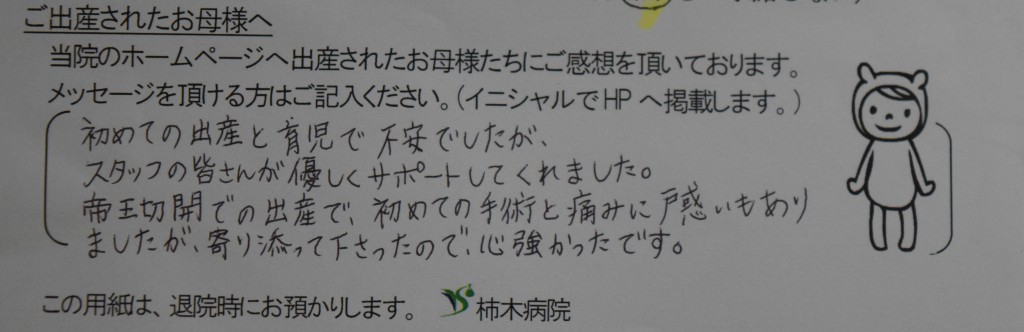 ご出産されたお母様へ
当院のホームページへ出産されたお母様たちにご感想を頂いております。
メッセージを頂ける方はご記入ください。(イニシャルでHPへ掲載します。)
初めての出産と育児で不安でしたが、
スタッフの皆さんが優しくサポートしてくれました。
帝王切開での出産で、初めての手術と痛みに戸惑いもあり
ましたが、寄り添って下さったので、心強かったです。
この用紙は、退院時にお預かりします。
柿木病院